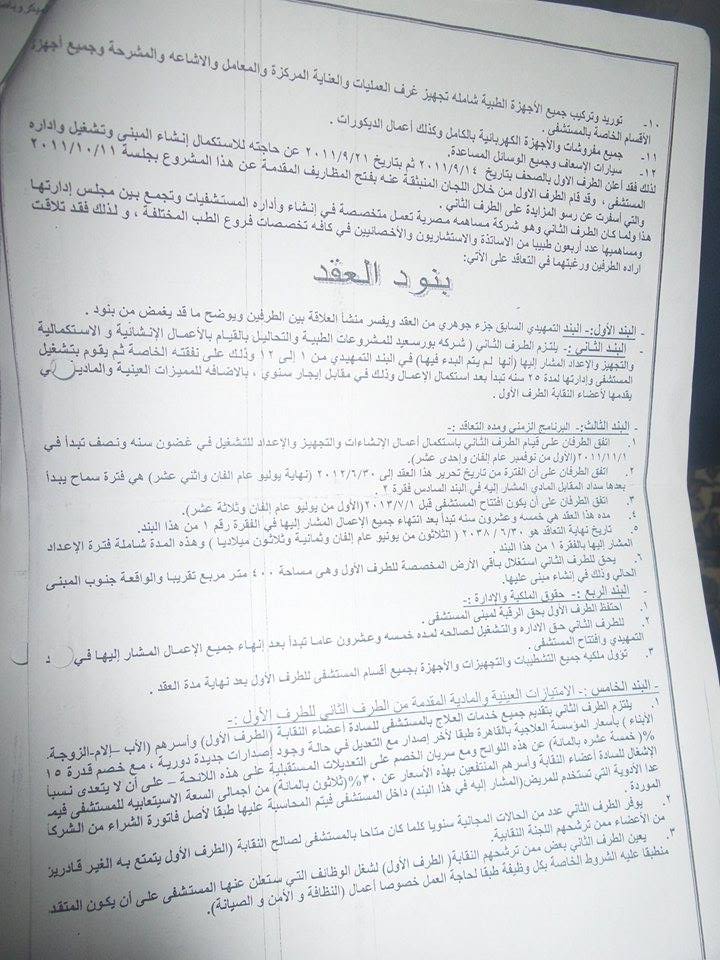 ١٠- توريد وتركيب جميع الأجهزة الطبية شامله تجهيز غرف العمليات والعناية المركزة والمعامل والاشاعه والمشرحة وجميع أجهزة
الأقسام الخاصة بالمستشفى .
١١- جميع مفروشات والأجهزة الكهربائية بالكامل وكذلك أعمال الديكورات .
١٢- سيارات الإسعاف وجميع الوسائل المساعدة.
لذلك فقد أعلن الطرف الأول بالصحف بتاريخ ٢٠١١/٩/١٤ ثم بتاريخ ٢٠١١/٩/٢١ عن حاجته للاستكمال إنشاء المبنى وتشغيل واداره
المستشفى , وقد قام الطرف الاول من خلال اللجان المنبثقة عنه بفتح المظاريف المقدمة عن هذا المشروع بجلسة ٢٠١١/١٠/١١
والتي أسفرت عن رسو المزايدة على الطرف الثاني .
هذا ولما كان الطرف الثاني وهو شركة مساهمه مصرية تعمل متخصصة في إنشاء وأداره المستشفيات وتجمع بين مجلس إدارتها
ومساهميها عدد أربعون طبيبا من الاساتذة والاستشاريون والأخصائيين في كافه تخصصات فروع الطب المختلفة , و لذلك فقد تلاقت
اراده الطرفين ورغبتهما في التعاقد على الأتي:
بنود العقد
- البند الأول:- البند التمهيدي السابق جزء جوهري من العقد ويفسر منشأ العلاقة بين الطرفين ويوضح ما قد يغمض من بنود .
- البند الثاني :- يلتزم الطرف الثاني ( شركه بورسعيد للمشروعات الطبية والتحاليل بالقيام بالأعمال الإنشائية و الاستكمالية
والتجهيز والإعداد المشار إليها (أنها لم يتم البدء فيها) في البند التمهيدي من ١ إلى ١٢ وذلك على نفقته الخاصة ثم يقوم بتشغيل
المستشفى وإدارتها لمدة ٢٥ سنه تبدأ بعد استكمال الإعمال وذلك في مقابل إيجار سنوي , بالاضافه للمميزات العينية والمادية
يقدمها لأعضاء النقابة الطرف الأول .
- البند الثالث:- البرنامج الزمني ومده التعاقد :-
١. اتفق الطرفان على قيام الطرف الثاني باستكمال أعمال الإنشاءات والتجهيز والإعداد للتشغيل في غضون سنه ونصف تبدأ في
٢٠١١/١١/١ (الأول من نوفمبر عام إلفان وإحدى عشر).
٢. اتفق الطرفان على أن الفترة من تاريخ تحرير هذا العقد إلى ٢٠١٢/٦/٣٠ (نهاية يوليو عام الفان واثني عشر) هي فترة سماح يبدأ
بعدها سداد المقابل المادي المشار إليه في البند السادس فقرة ٢ .
٣. اتفق الطرفان على أن يكون أفتتاح المستشفى قبل ٢٠١٣/٧/١ (الأول من يوليو عام إلفان وثلاثة عشر).
٤. مده هذا العقد هي خمسه وعشرون سنه تبدأ بعد انتهاء جميع الإعمال المشار إليها في الفقرة رقم ١ من هذا البند.
٥. تاريخ نهاية التعاقد هو ٢٠٣٨/٦/٣٠ ( الثلاثون من يونيو عام إلفان وثمانية وثلاثون ميلاديا ) وهذه المدة شاملة فترة الإعداد
المشار إليها بالفقرة ١ من هذا البند .
٦. يحق للطرف الثاني استغلال باقي الأرض المخصصة للطرف الأول وهى مساحة ٤٠٠ متر مربع تقريبا والواقعة جنوب المبنى
الحالي وذلك في إنشاء مبنى عليها.
- البند الربع :- حقوق الملكية والإدارة :-
١. احتفظ الطرف الأول بحق الرقبة لمبنى المستشفى .
٢. للطرف الثاني حق الاداره والتشغيل لصالحه لمده خمسه وعشرون عاما تبدأ بعد إنهاء جميع الإعمال المشار إليها في
التمهيدي وإفتتاح المستشفى .
٣. تؤول ملكيه جميع التشطيبات والتجهيزات والأجهزة بجميع اقسام المستشفى للطرف الأول بعد نهاية مدة العقد .
- البند الخامس :- الامتيازات العينية والمادية المقدمة من الطرف الثاني للطرف الأول :-
١. يلتزم الطرف الثاني بتقديم جميع خدمات العلاج بالمستشفى للسادة أعضاء النقابة (الطرف الأول) وأسرهم (الأب –إلام-الزوجة-
الأبناء ) بأسعار المؤسسة العلاجية بالقاهرة طبقا لآخر إصدار مع التعديل في حالة وجود إصدارات جديدة دورية , مع خصم قدرة ١٥
%( خمسة عشره بالمائة) عن هذه اللوائح ومع سريان الخصم على التعديلات المستقبلية على هذه اللائحة – على أن لا يتعدى نسبة
الإشغال للسادة أعضاء النقابة وأسرهم المنتفعين بهذه الأسعار عن ٣٠%(ثلاثون بالمائة) من اجمالى السعة الاستيعابيه للمستشفى فيما
عدا الأدوية التي تستخدم للمريض(المشار إليه في هذا البند) داخل المستشفى فيتم المحاسبة عليها طبقا لأصل فاتورة الشراء من الشركة
الموردة .
٢. يوفر الطرف الثاني عدد من الحالات المجانية سنويا كلما كان متاحا بالمستشفى لصالح النقابة (الطرف الأول يتمتع به الغير قادرين
من الأعضاء ممن ترشحهم اللجنة النقابية.
٣. يعين الطرف الثاني بعض ممن ترشحهم النقابة( الطرف الأول) لشغل الوظائف التي ستعلن عنها المستشفى على أن يكون المتقدم
منطبقا عليه الشروط الخاصة بكل وظيفة طبقا لحاجة العمل خصوصا أعمال (النظافة و الأمن و الصيانة).